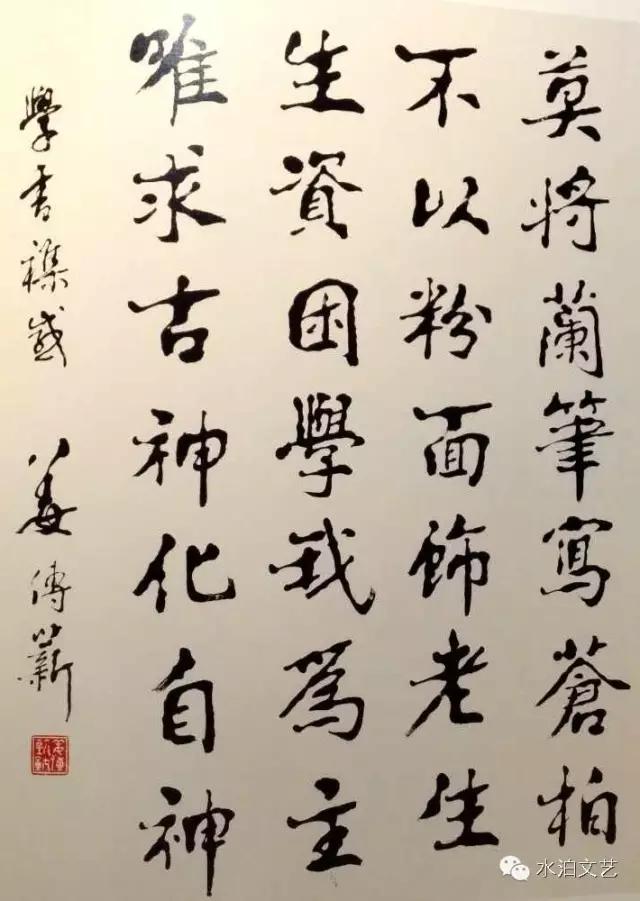 莫將蘭筆寫蒼柏
不以粉面飾老生
生資困學我爲主
唯求古神化自神
學書襍感 姜傳
水泊文艺